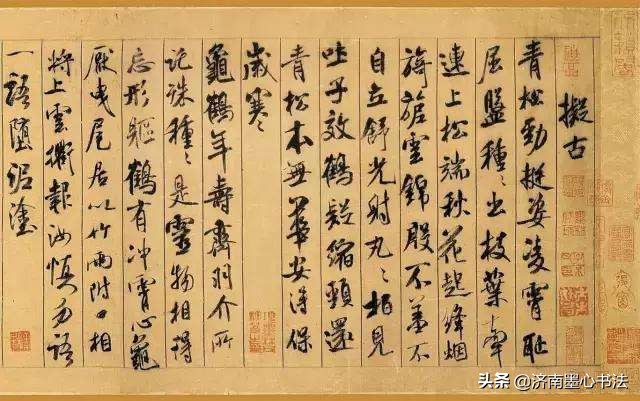 擬古
青松勁挺姿凌霄恥
屈盤種〻出枝葉牽
連上松端秋花起絳烟
旖旎雲錦殷不羞不
自立舒光射丸〻柏見
吐子效鶴疑縮頸還
青松本無華安得保
歲寒
龜鶴年壽齊羽介所
託殊種〻是靈物相得
忘形軀鶴有冲霄心龜
厭曳尾居以竹兩附口相
將上雲衢報汝慎勿語
一語墮泥塗
头条 @济南墨心书法